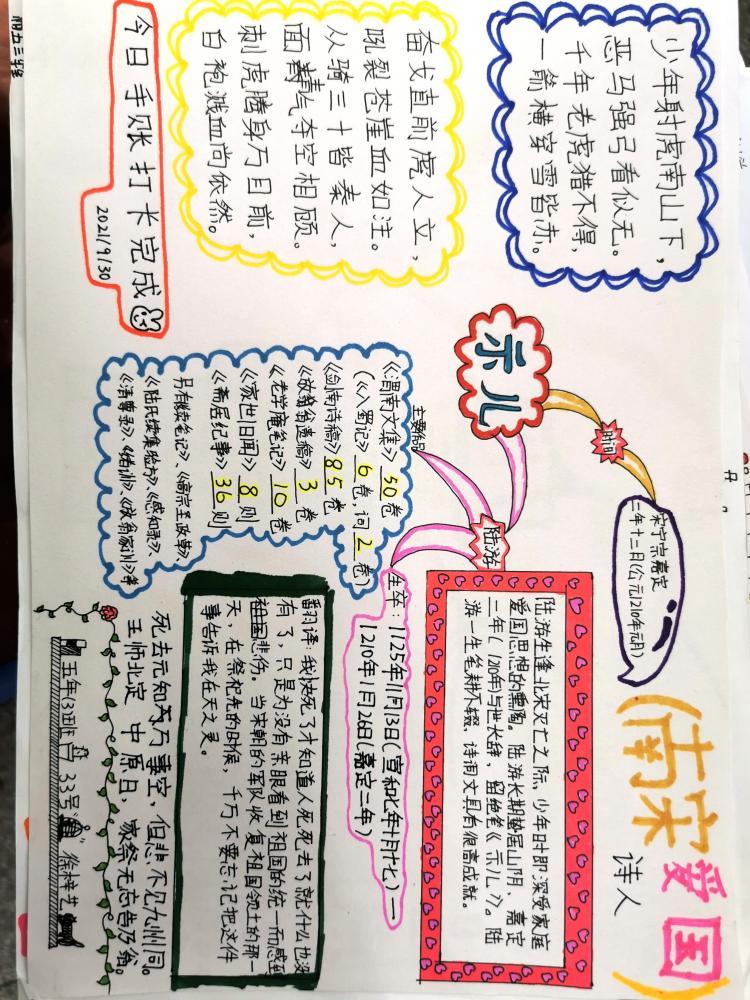 (南宋爱国)
诗人
少年射虎南山下,
恶马强弓看似无。
千年老虎猎不得,
一箭横穿雪皆赤。
奋戈直前虎人立,
吼裂苍崖血如注。
从骑三十皆秦人,
面青气夺空相顾。
刺虎腾身万目前,
白袍溅血尚依然。
今日手账打卡完成
2021/9/30
示儿
时间
宋宁宗嘉定
三年十二月(公元1210年元月)
陆游
主要作品
陆游生逢北宋灭亡之际,少年时即深受家庭
爱国思想的熏陶。陆游长期蛰居山阴,嘉定
二年(1210年)与世长辞,留绝笔《示儿》。陆
游一生笔耕不辍,诗词文具有很高成就。
《渭南文集》50卷
(《入蜀记》6卷,词2卷)
《剑南诗稿》85卷
《放翁逸稿》3卷
《老学庵笔记》10卷
《家世旧闻》8则
《斋居纪事》36则
另有《续笔记》、《高宗圣政草》、
《陆氏续集验方》、《感知录》、
《清尊录》、《绪训》、《放翁家训》等
生卒:1125年11月13日(宣和七年十月十七)—
1210年1月26日(嘉定二年)
翻译:我快死了才知道人死死去了就什么也没
有了,只是为没有亲眼看到祖国的统一而感到
悲伤。当宋朝的军队收复祖国领土的那一
天,在祭祀先的时候,千万不要忘记把这件
事告诉我在天之灵。
死去元知万事空,但悲不见九州同。
王师北定中原日,家祭无忘告乃翁。
五年(3)班 33号 徐梓艺